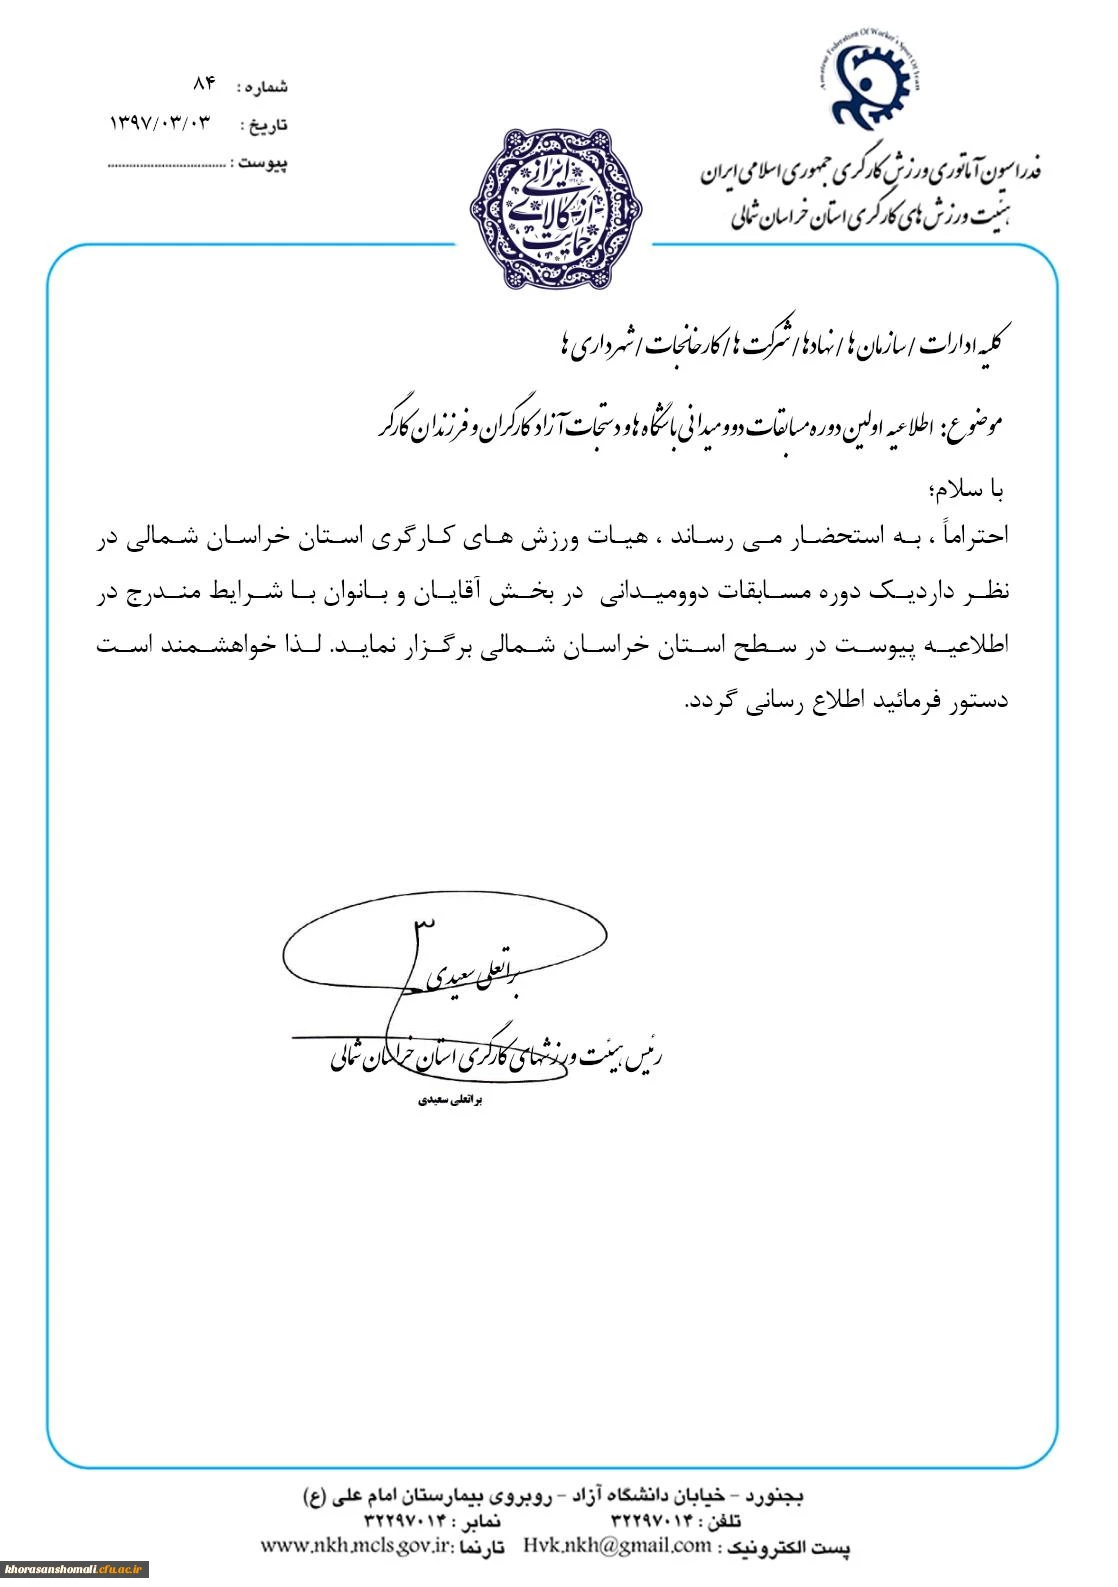 Amateur Federation Of Worker's Sport Of Iran
شماره : ۸۴
تاریخ : ۱۳۹۷/۰۳/۰۳
پیوست : .................................
فدراسیون آماتوری ورزش کارگری جمهوری اسلامی ایران
هیئت ورزش های کارگری استان خراسان شمالی
حمایت از کالای ایرانی
کلیه ادارات /سازمان ها /نهادها/شرکت ها/کارخانجات/شهرداری ها
موضوع: اطلاعیه اولین دوره مسابقات دوومیدانی باشگاه ها و دستجات آزاد کارگران و فرزندان کارگر
با سلام؛
احتراماً ، به استحضار می رساند ، هیات ورزش های کارگری استان خراسان شمالی در
نظر داردیک دوره مسابقات دوومیدانی در بخش آقایان و بانوان با شرایط مندرج در
اطلاعیه پیوست در سطح استان خراسان شمالی برگزار نماید. لذا خواهشمند است
دستور فرمائید اطلاع رسانی گردد.
براتعلی سعیدی
رئیس هیئت ورزشهای کارگری استان خراسان شمالی
براتعلی سعیدی
بجنورد - خیابان دانشگاه آزاد - روبروی بیمارستان امام علی (ع)
تلفن : ۳۲۲۹۷۰۱۴ نمابر : ۳۲۲۹۷۰۱۴
پست الکترونیک : Hvk.nkh@gmail.com تارنما :www.nkh.mcls.gov.ir
khorasanshomali.cfu.ac.ir